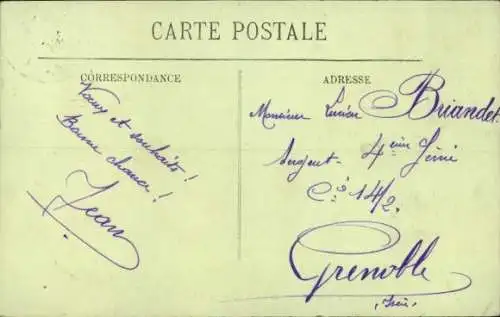 CARTE POSTALE
CORRESPONDANCE
Vœux et souhaits !
Bonne chance !
Jean
ADRESSE
Monsieur Lucien Briandet
Sergent - 4ième Génie
Cie 14/2.
Grenoble
Isère